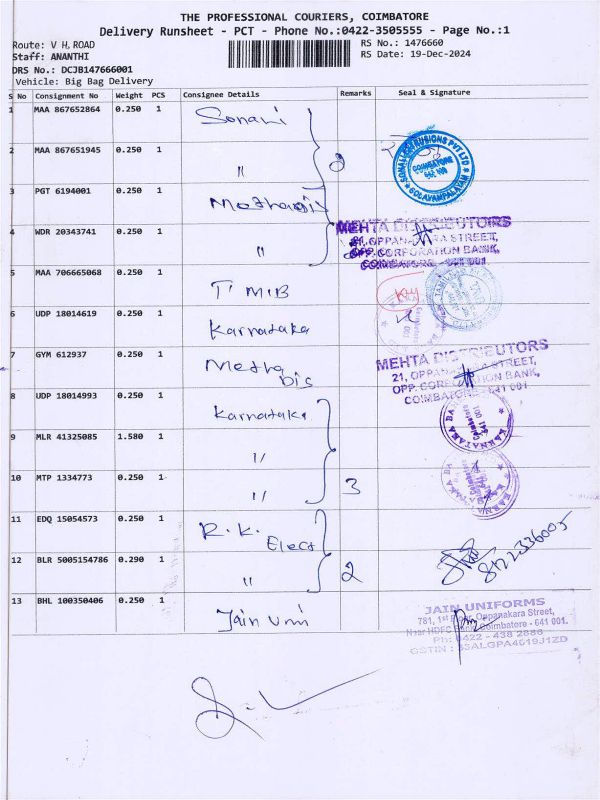 THE PROFESSIONAL COURIERS, COIMBATORE
Delivery Runsheet - PCT - Phone No.:0422-3505555 - Page No.:1
Route: V H ROAD
RS No.: 1476660
Staff: ANANTHI
RS Date: 19-Dec-2024
DRS No.: DCJB147666001
Vehicle: Big Bag Delivery
S No Consignment No Weight PCS Consignee Details Remarks Seal & Signature
1 MAA 867652864 0.250 1
2 MAA 867651945 0.250 1 〃 2
COIMBATORE
3 PGT 6194001 0.250 1
4 WDR 20343741 0.250 1 〃
MEHTA DISTRIBUTORS
21, OPPANAKARA STREET,
OPP. CORPORATION BANK,
COIMBATORE - 641 001
5 MAA 706665068 0.250 1 T MIB
6 UDP 18014619 0.250 1 Karnataka
7 GYM 612937 0.250 1 Metha Dis
MEHTA DISTRIBUTORS
21, OPPANAKARA STREET,
OPP. CORPORATION BANK,
COIMBATORE - 641 001
8 UDP 18014993 0.250 1 Karnataka
KARNATAKA BA
Coimbatore
641 001
9 MLR 41325085 1.580 1 〃
10 MTP 1334773 0.250 1 〃 3
11 EDQ 15054573 0.250 1 R.K. Elect
12 BLR 5005154786 0.290 1 〃 2
13 BHL 100350406 0.250 1 Jain Uni
JAIN UNIFORMS
781, 1st Floor, Oppanakara Street,
Near HDFC Bank, Coimbatore - 641 001.
Ph: 0422 - 438 2886